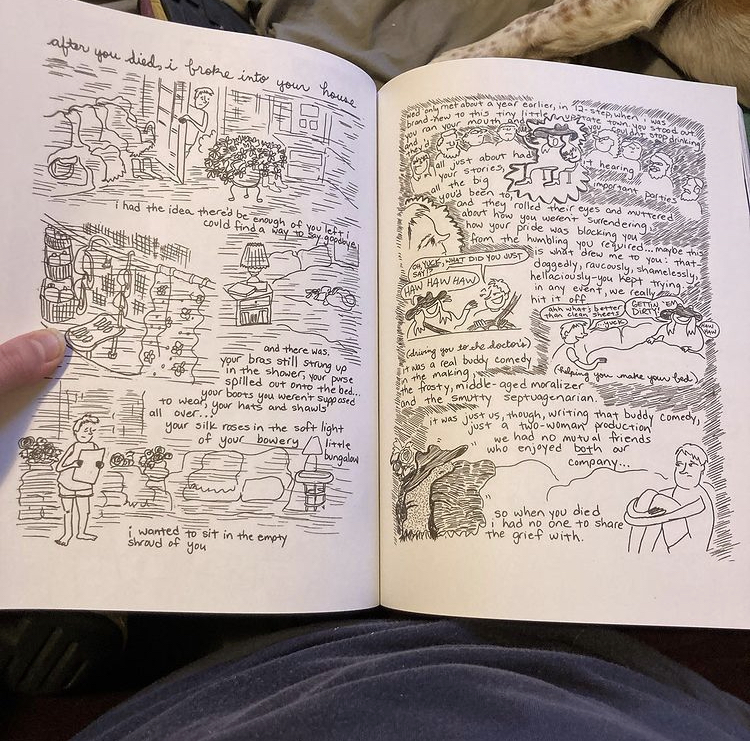 after you died, i broke into your house
i had the idea there'd be enough of you left i
could find a way to say goodbye,
and there was.
your bras still strung up
in the shower, your purse
spilled out onto the bed...
your boots you weren't supposed
to wear, your hats and shawls
all over...
your silk roses in the soft light
of your bowery little
bungalow
i wanted to sit in the empty
shroud of you
we'd only met about a year earlier, in 12-step, when i was
brand-new to this tiny little upstate town. you stood out.
you ran your mouth and you couldn't stop drinking
and
they'd
all just about had it hearing
your stories,
all the big important parties
you'd been to,
and they rolled their eyes and muttered
about how you weren't surrendering,
how your pride was blocking you
from the humbling you required... maybe this
is what drew me to you: that
doggedly, raucously, shamelessly,
hellaciously you kept trying.
in any event, we really
hit it off
OH YUCK, WHAT DID YOU JUST
SAY?
HAW HAW HAW
(driving you to the doctor's)
ahh what's better
than clean sheets
GETTIN' 'EM
DIRTY!
yuck
HAW
HAW
(helping you make your bed)
it was a real buddy comedy
in the making:
the frosty, middle-aged moralizer
and the smutty septuagenarian.
it was just us, though, writing that buddy comedy,
just a two-woman production
we had no mutual friends
who enjoyed both our
company...
so when you died
i had no one to share
the grief with.